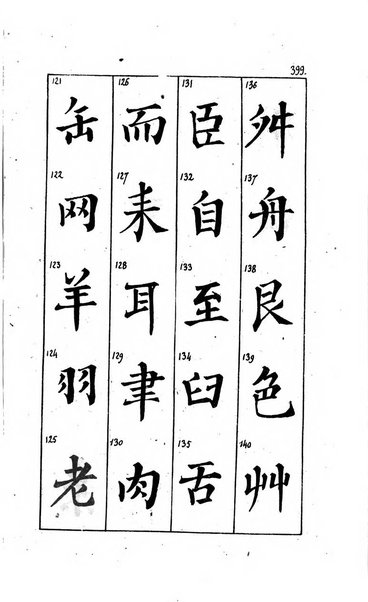 399.
121 缶
122 网
123 羊
124 羽
125 老
126 而
127 耒
128 耳
129 聿
130 肉
131 臣
132 自
133 至
134 臼
135 舌
136 舛
137 舟
138 艮
139 色
140 艸